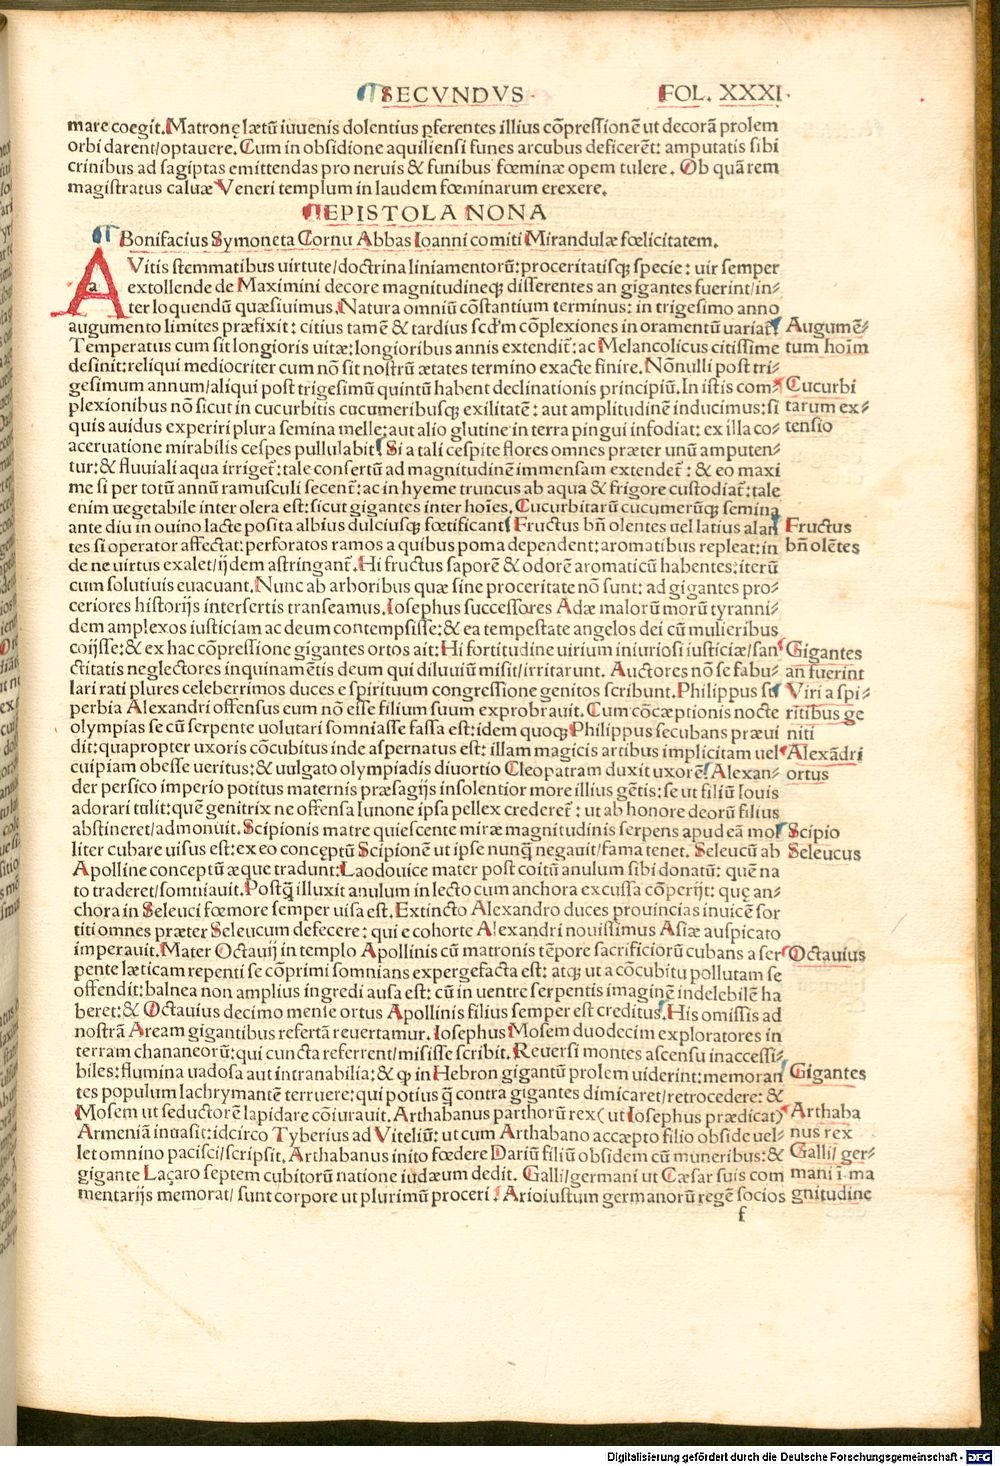 SECVNDVS. FOL. XXXI.
mare coegit. Matronę lætū iuuenis dolentius ꝑferentes illius cōpressionē ut decorā prolem
orbi darent/optauere. Cum in obsidione aquiliensi funes arcubus deficerēt: amputatis sibi
crinibus ad sagiptas emittendas pro neruis & funibus fœminæ opem tulere. Ob quā rem
magistratus caluæ Veneri templum in laudem fœminarum erexere.
EPISTOLA NONA
Bonifacius Symoneta Cornu Abbas Ioanni comiti Mirandulæ fœlicitatem.
AVitis stemmatibus uirtute/doctrina liniamentorū: proceritatisqꝫ specie: uir semper
extollende de Maximini decore magnitudineqꝫ differentes an gigantes fuerint/in-
ter loquendū quæsiuimus. Natura omniū cōstantium terminus: in trigesimo anno
augumento limites præfixit: citius tamē & tardius scd'm cōplexiones in oramentū uariat̄ Augumē-
Temperatus cum sit longioris uitæ: longioribus annis extendit̄: ac Melancolicus citissime tum hoīm
desinit: reliqui mediocriter cum nō sit nostrū ætates termino exacte finire. Nōnulli post tri-
gesimum annum/aliqui post trigesimū quintū habent declinationis principiū. In istis com- Cucurbi
plexionibus nō sicut in cucurbitis cucumeribusqꝫ exilitatē: aut amplitudinē inducimus: si tarum ex-
quis auidus experiri plura semina melle: aut alio glutine in terra pingui infodiat: ex illa co- tensio
aceruatione mirabilis cespes pullulabit. Si a tali cespite flores omnes præter unū amputen-
tur: & fluuiali aqua irriget̄: tale consertū ad magnitudinē immensam extendet̄: & eo maxi
me si per totū annū ramusculi secent̄: ac in hyeme truncus ab aqua & frigore custodiat̄: tale
enim uegetabile inter olera est: sicut gigantes inter hoīes. Cucurbitarū cucumerūqꝫ semina
ante diu in ouino lacte posita albius dulciusqꝫ fœtificant. Fructus bn̄ olentes uel latius alan Fructus
tes si operator affectat: perforatos ramos a quibus poma dependent: aromatibus repleat: in bn̄ olētes
de ne uirtus exalet/ijdem astringant̄. Hi fructus saporē & odorē aromaticū habentes: iterū
cum solutiuis euacuant. Nunc ab arboribus quæ sine proceritate nō sunt: ad gigantes pro-
ceriores historijs intersertis transeamus. Iosephus successores Adæ malorū morū tyranni-
dem amplexos iusticiam ac deum contempsisse: & ea tempestate angelos dei cū mulieribus
coijsse: & ex hac cōpressione gigantes ortos ait: Hi fortitudine uirium iniuriosi iusticiæ/san- Gigantes
ctitatis neglectores inquinamētis deum qui diluuiū misit/irritarunt. Auctores nō se fabu- an fuerint
lari rati plures celeberrimos duces e spirituum congressione genitos scribunt. Philippus su Viri a spi-
perbia Alexandri offensus eum nō esse filium suum exprobrauit. Cum cōcæptionis nocte ritibus ge
olympias se cū serpente uolutari somniasse fassa est: idem quoqꝫ Philippus secubans præui niti
dit: quapropter uxoris cōcubitus inde aspernatus est: illam magicis artibus implicitam uel Alexādri
cuipiam obesse ueritus: & uulgato olympiadis diuortio Cleopatram duxit uxorē. Alexan- ortus
der persico imperio potitus maternis præsagijs insolentior more illius gētis: se ut filiū Iouis
adorari tulit: quē genitrix ne offensa Iunone ipsa pellex crederet̄: ut ab honore deorū filius
abstineret/admonuit. Scipionis matre quiescente miræ magnitudinis serpens apud eā mol Scipio
liter cubare uisus est: ex eo concęptū Scipionē ut ipse nunq̄ negauit/fama tenet. Seleucū ab Seleucus
Apolline conceptū æque tradunt: Laodouice mater post coitū anulum sibi donatū: quē na
to traderet/somniauit. Postq̄ illuxit anulum in lecto cum anchora excussa cōperijt: quę an-
chora in Seleuci fœmore semper uisa est. Extincto Alexandro duces prouincias inuicē sor
titi omnes præter Seleucum defecere: qui e cohorte Alexandri nouissimus Asiæ auspicato
imperauit. Mater Octauij in templo Apollinis cū matronis tēpore sacrificiorū cubans a ser Octauius
pente læticam repenti se cōprimi somnians expergefacta est: atqꝫ ut a cōcubitu pollutam se
offendit: balnea non amplius ingredi ausa est: cū in uentre serpentis imaginē indelebilē ha
beret: & Octauius decimo mense ortus Apollinis filius semper est creditus. His omissis ad
nostrā Aream gigantibus refertā reuertamur. Iosephus Mosem duodecim exploratores in
terram chananeorū: qui cuncta referrent/misisse scribit. Reuersi montes ascensu inaccessi-
biles: flumina uadosa aut intranabilia: & ꝙ in Hebron gigantū prolem uiderint: memoran Gigantes
tes populum lachrymantē terruere: qui potius q̄ contra gigantes dimicaret/retrocedere: &
Mosem ut seductorē lapidare cōiurauit. Arthabanus parthorū rex (ut Iosephus prædicat) Arthaba
Armeniā inuasit: idcirco Tyberius ad Viteliū: ut cum Arthabano accæpto filio obside uel- nus rex
let omnino pacisci/scripsit. Arthabanus inito fœdere Dariū filiū obsidem cū muneribus: & Galli/ger-
gigante Laçaro septem cubitorū natione iudæum dedit. Galli/germani ut Cæsar suis com mani ī ma
mentarijs memorat/ sunt corpore ut plurimū proceri. Arioiustum germanorū regē socios gnitudine
f
Digitalisierung gefördert durch die Deutsche Forschungsgemeinschaft - DFG